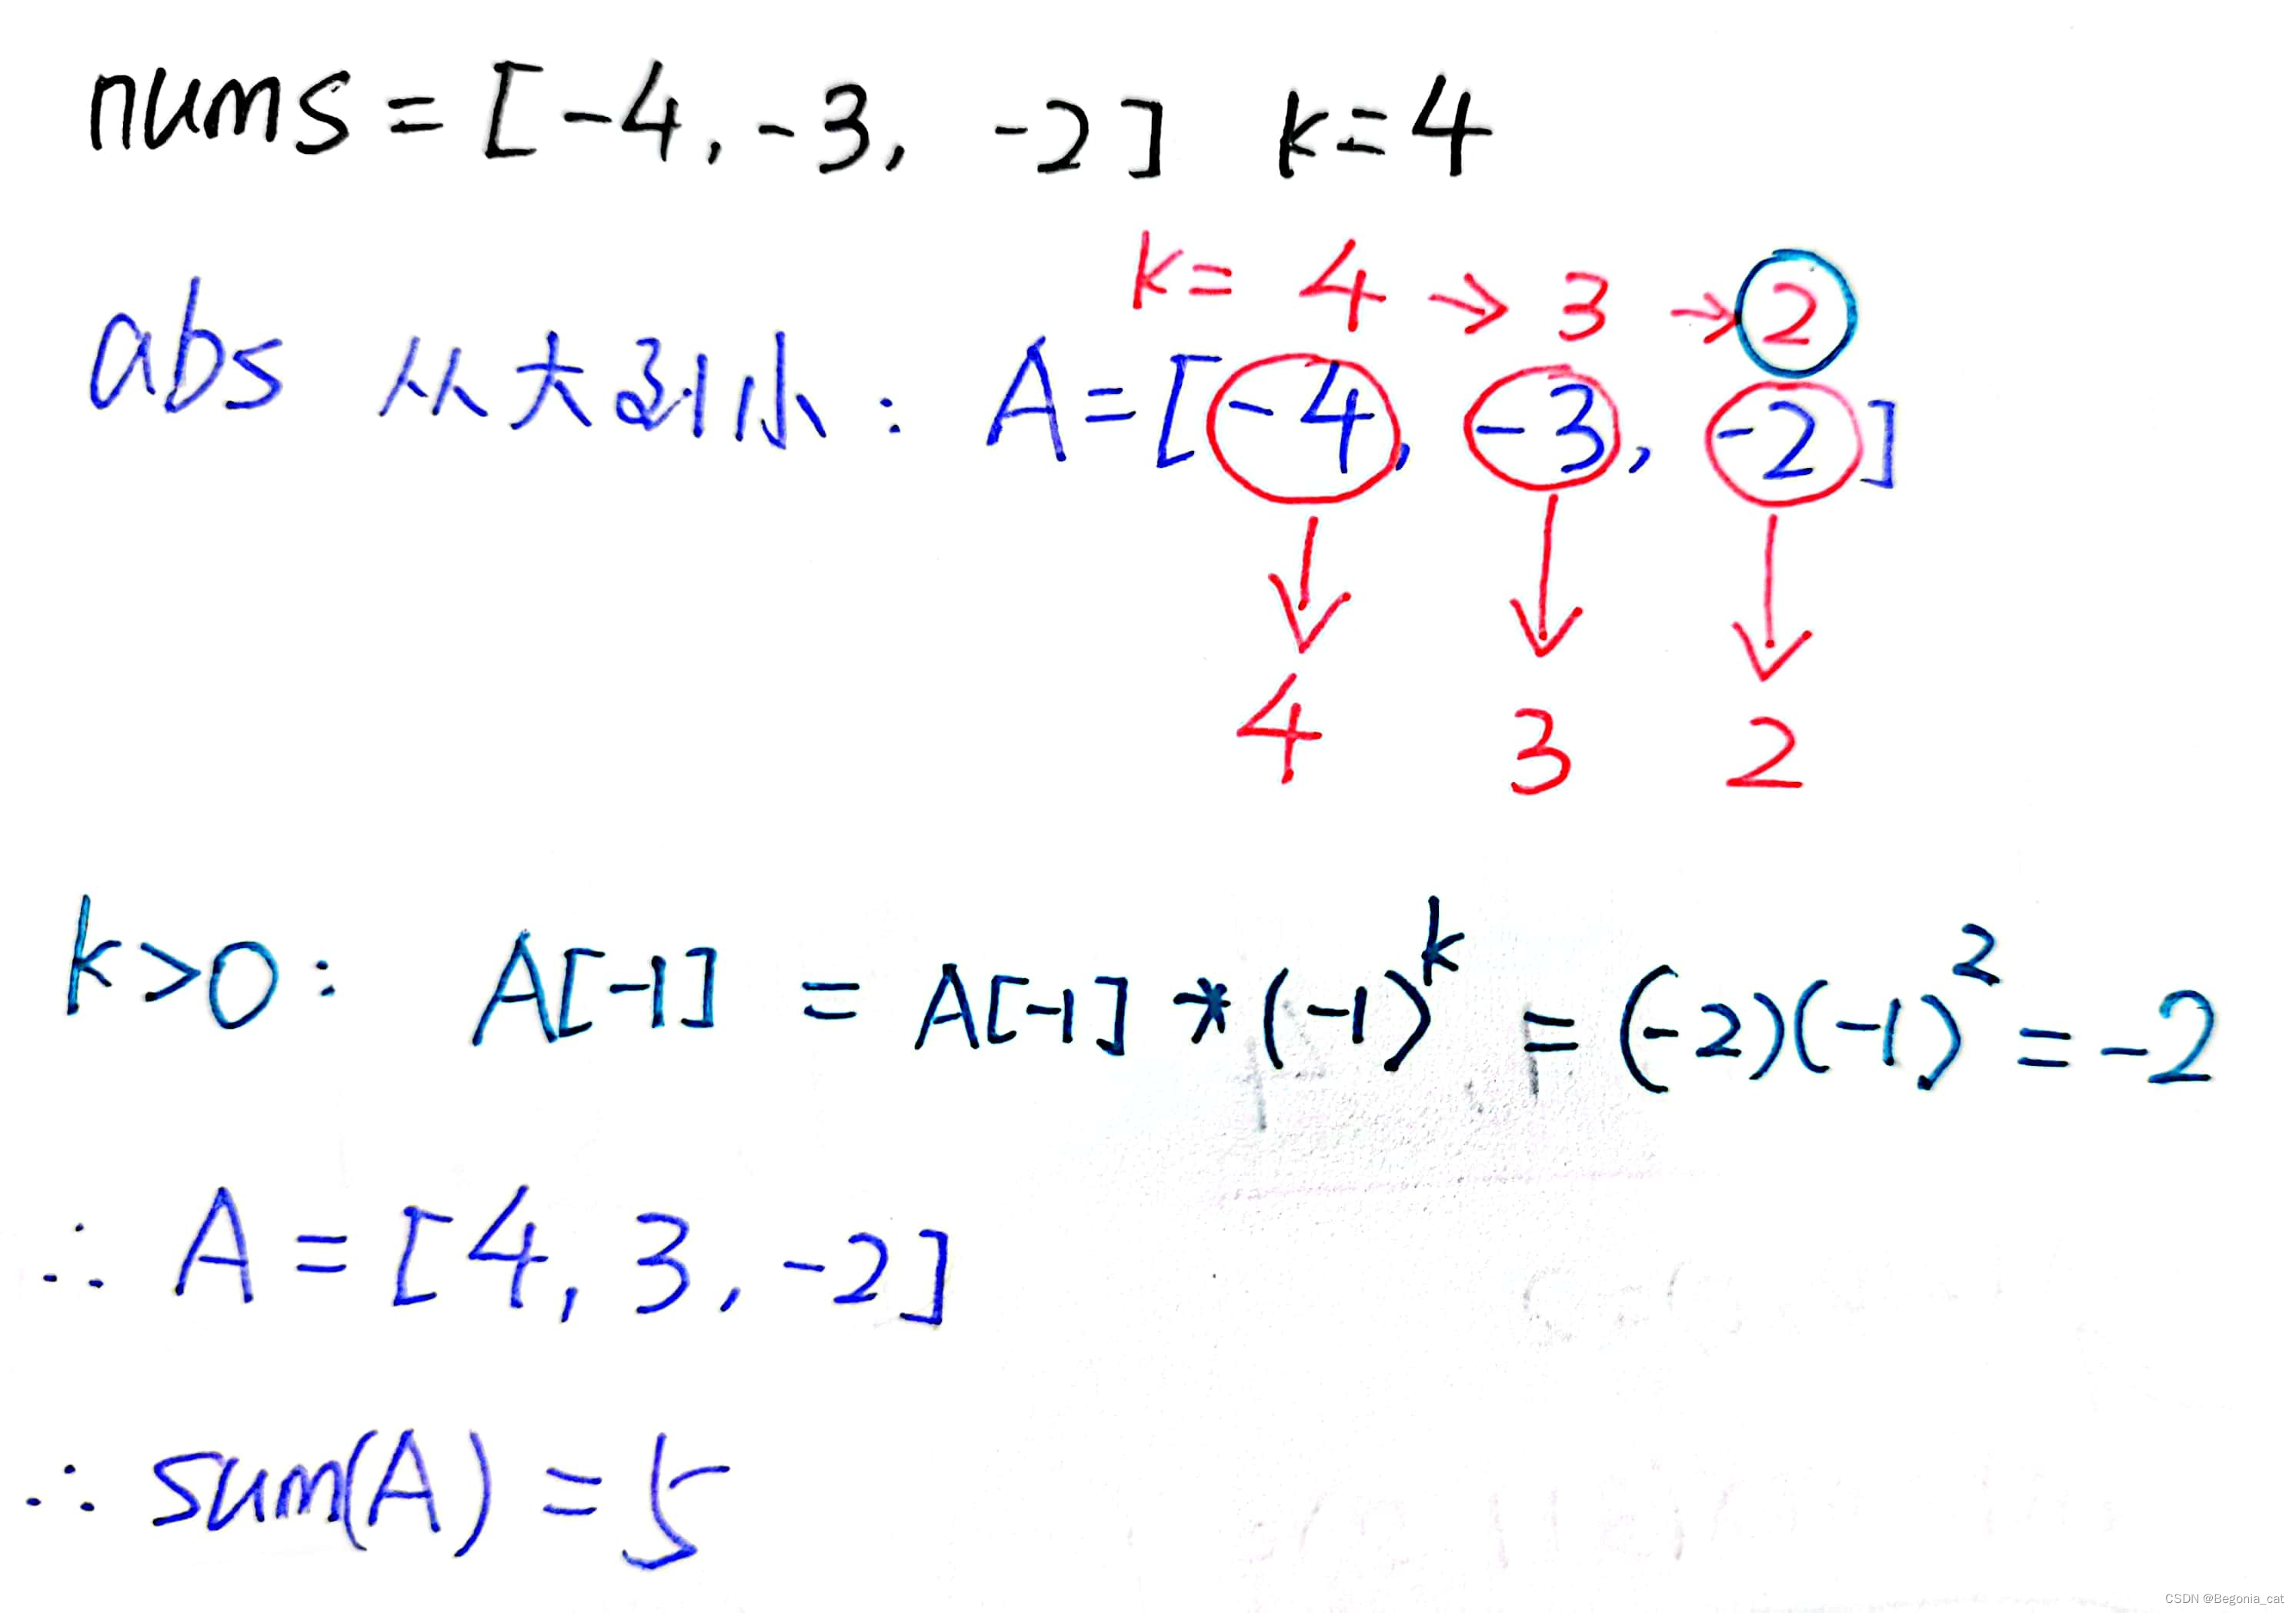 nums = [-4, -3, -2] k=4
k= 4 → 3 → 2
abs 从大到小: A=[-4, -3, -2]
4 3 2
k>0: A[-1] = A[-1] * (-1)^k = (-2)(-1)^2 = -2
∴ A = [4, 3, -2]
∴ sum(A) = 5
CSDN @Begonia_cat